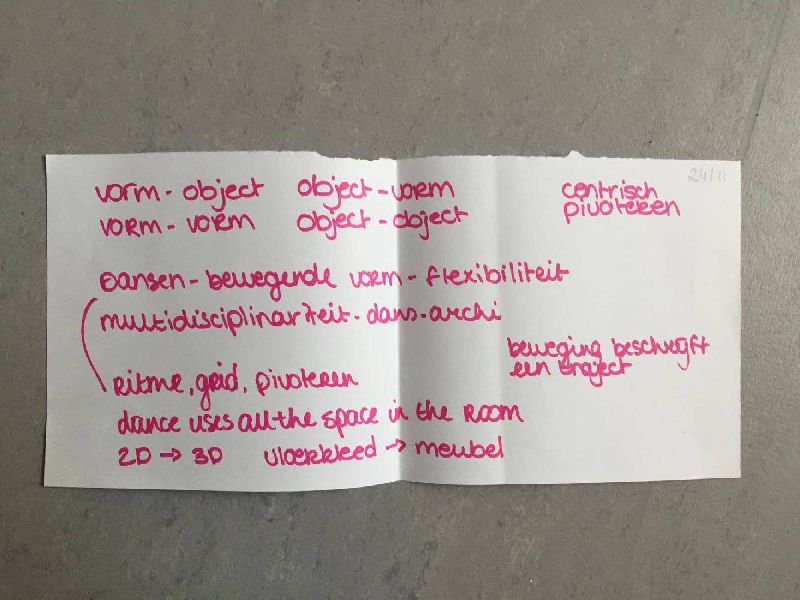 24/11
vorm - object object - vorm centrisch
vorm - vorm object - object pivoteren
Dansen - bewegende vorm - flexibiliteit
multidisciplinariteit - dans - archi
beweging beschrijft
een traject
Ritme, grid, pivoteren
dance uses all the space in the room
2D → 3D vloerkleed → meubel